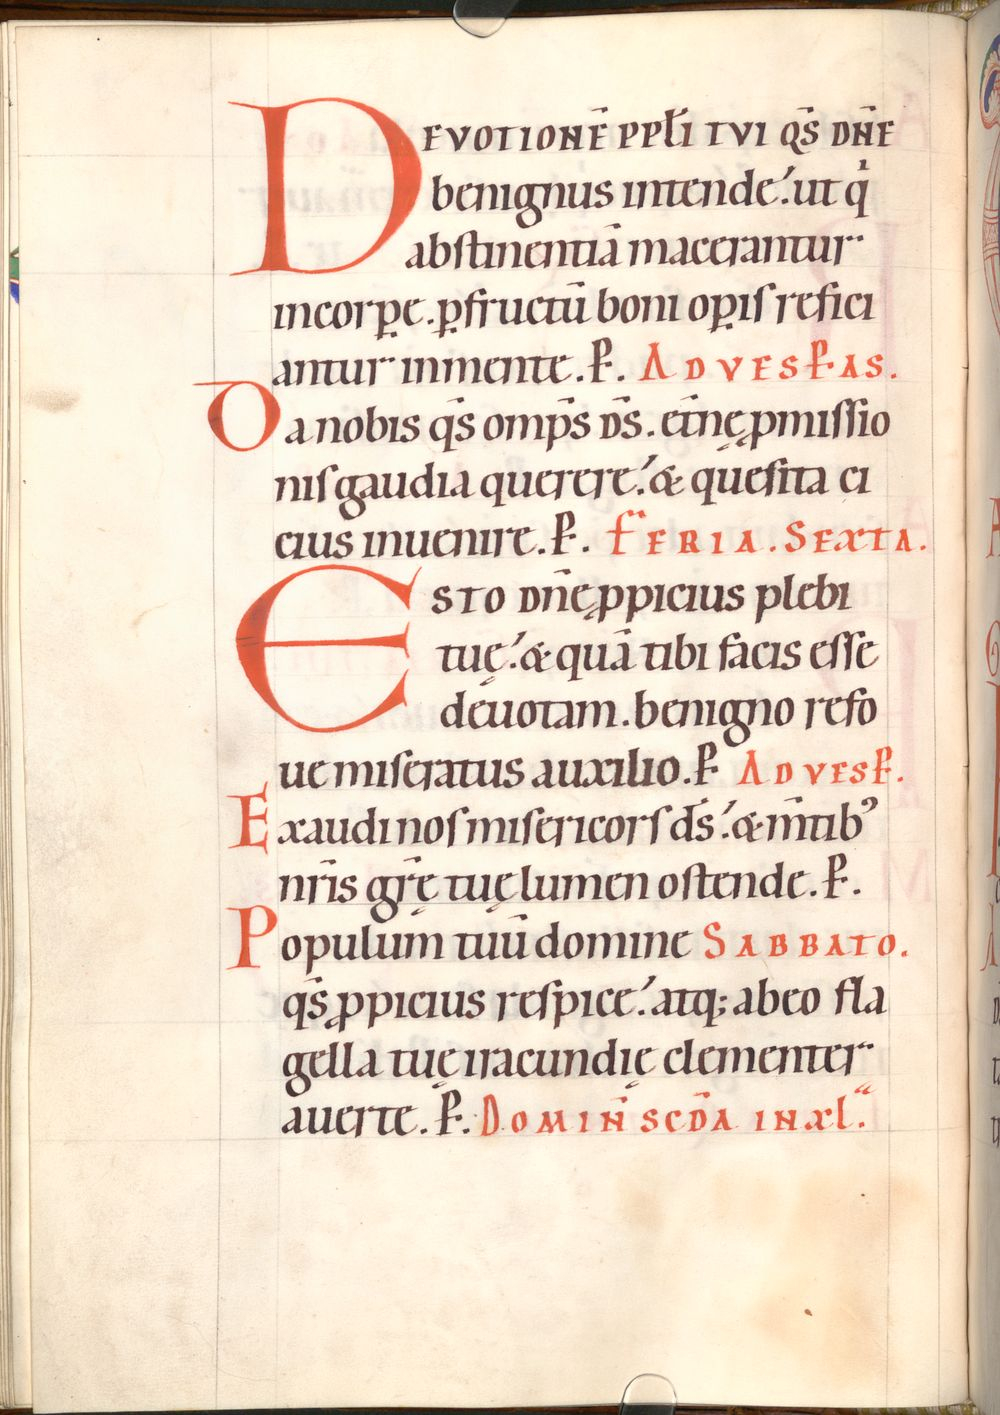 DEVOTIONĒ PPL̄I TVI QS̄ DN̄E
benignus intende. ut q̇
abstinentiā macerantur
in corꝑe. ꝑ fructū boni oꝑis refici
antur in mente. P̄. AD VESP̄AS.
Da nobis qs̄ omp̄s DS̄. et̄nę ꝓmissio
nis gaudia querere. & quesita ci
cius inuenire. P̄. FERIA. SEXTA.
ESTO DN̄E ꝓpicius plebi
tuę. & quā tibi facis esse
deuotam. benigno refo
ue miseratus auxilio. P̄ AD VESP̄.
Exaudi nos misericors ds̄. & m̄tibꝰ
nr̄is gr̄ę tuę lumen ostende. P̄.
Populum tuū domine SABBATO.
qs̄ ꝓpicius respice. atq; ab eo fla
gella tuę iracundię clementer
auerte. P̄. DOMIN̄ SCD̄A IN XL.